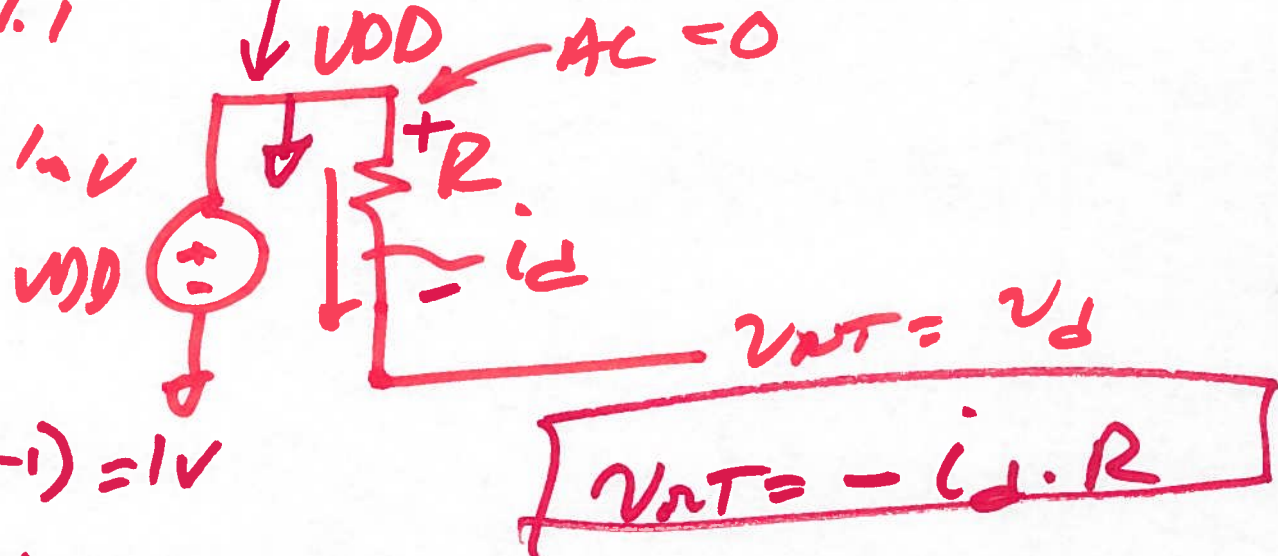 VDD AC = 0
+
R
1mV
VDD
+
-
id
-
vOUT = vd
-1) = 1V
vOUT = - id · R